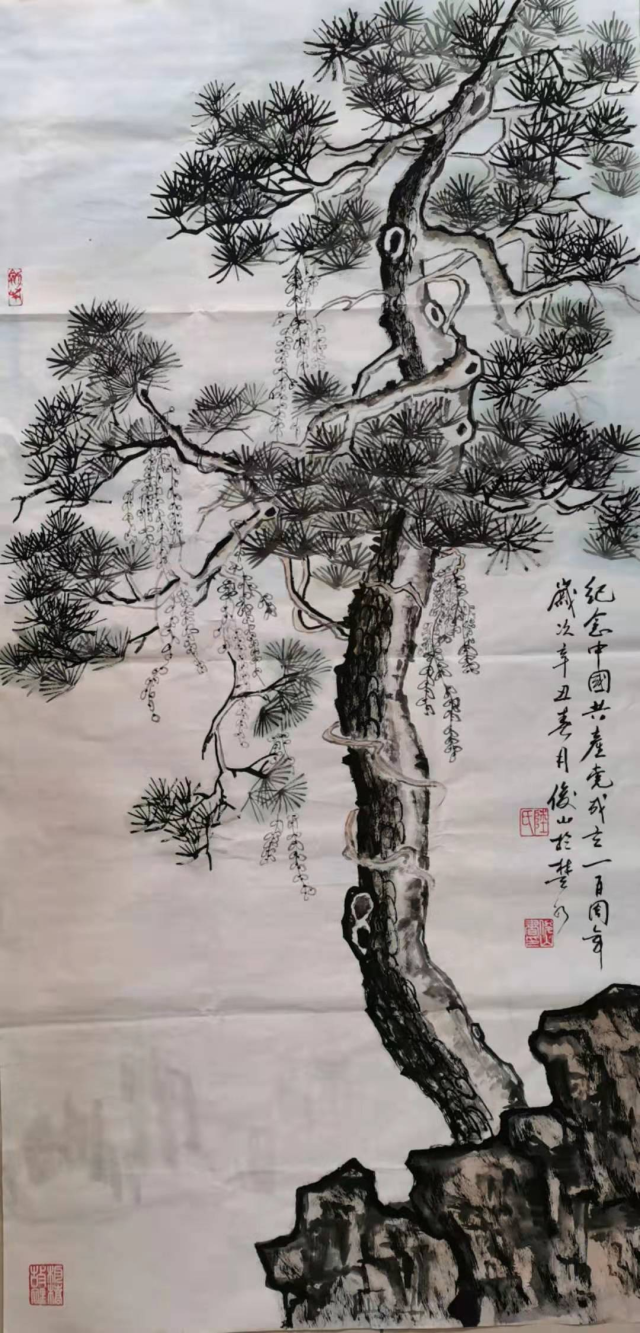 紀念中國共產党成立一百周年
歲次辛丑春月俊山於楚水
陸氏